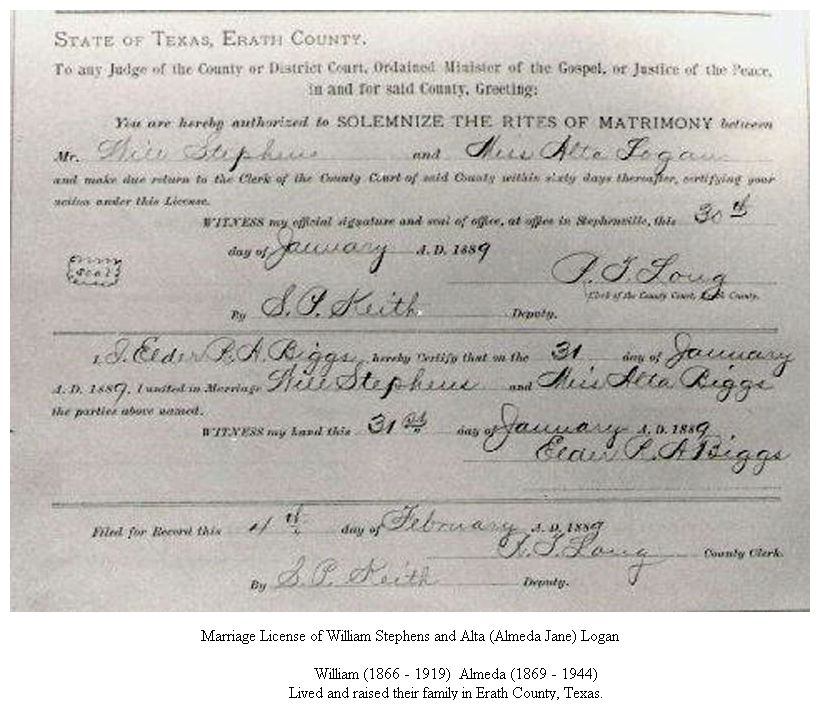 STATE OF TEXAS, ERATH COUNTY.
To any Judge of the County or District Court, Ordained Minister of the Gospel, or Justice of the Peace,
in and for said County, Greeting:
You are hereby authorized to SOLEMNIZE THE RITES OF MATRIMONY between
Mr. Will Stephens and Miss Alta Logan
and make due return to the Clerk of the County Court of said County within sixty days thereafter, certifying your
action under this License.
WITNESS my official signature and seal of office, at office in Stephenville, this 30th
day of January A. D. 1889
seal
P. T. Long
Clerk of the County Court, County.
By S. P. Keith Deputy.
I, J. Elder P. A. Biggs hereby Certify that on the 31 day of January
A. D. 1889, I united in Marriage Will Stephens and Miss Alta Biggs
the parties above named.
WITNESS my hand this 31st day of January A. D. 1889
Elder P. A Biggs
Filed for Record this 4th day of February A. D. 1889
P. T. Long County Clerk.
By S. P. Keith Deputy.
Marriage License of William Stephens and Alta (Almeda Jane) Logan
William (1866 - 1919) Almeda (1869 - 1944)
Lived and raised their family in Erath County, Texas.